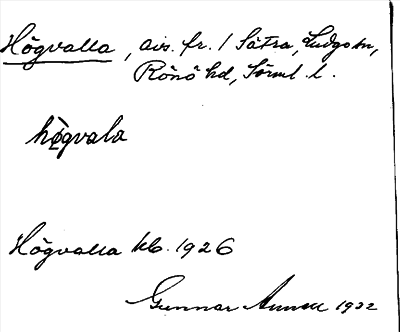 Högvalla, avs. fr. 1 Sätra, Ludgo sn,
Rönö hd, Sörml. l.
hö̀gvala
Högvalla kb. 1926
Gunnar 1922